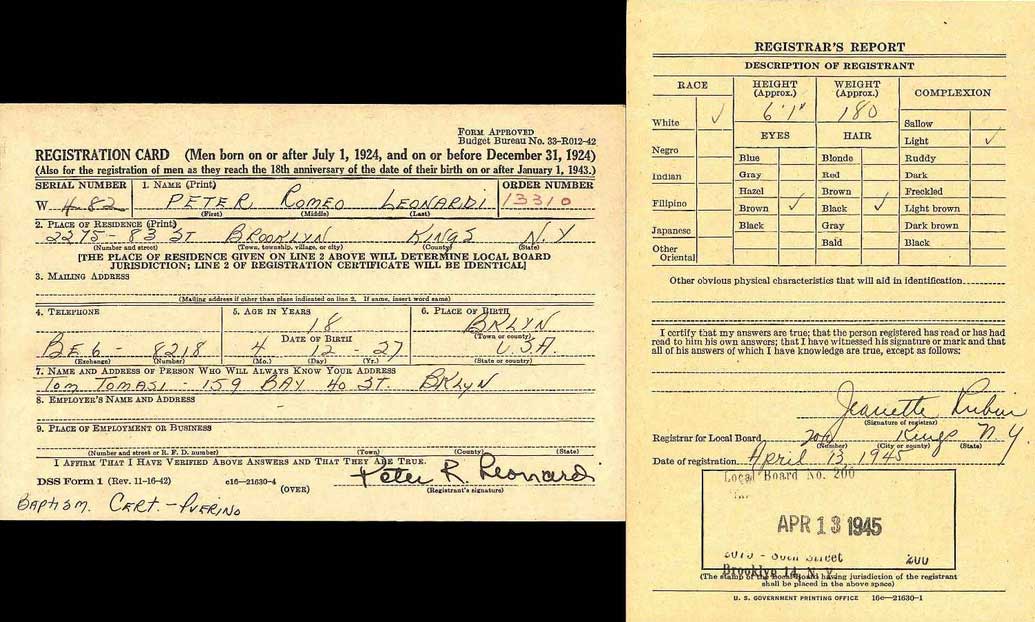 FORM APPROVED
Budget Bureau No. 33-R012-42
REGISTRATION CARD (Men born on or after July 1, 1924, and on or before December 31, 1924)
(Also for the registration of men as they reach the 18th anniversary of the date of their birth on or after January 1, 1943.)
SERIAL NUMBER 1. NAME (Print) ORDER NUMBER
W 482 PETER ROMEO LEONARDI 13310
(First) (Middle) (Last)
2. PLACE OF RESIDENCE (Print)
2275 - 83 ST BROOKLYN KINGS N.Y
(Number and street) (Town, township, village, or city) (County) (State)
[THE PLACE OF RESIDENCE GIVEN ON LINE 2 ABOVE WILL DETERMINE LOCAL BOARD
JURISDICTION; LINE 2 OF REGISTRATION CERTIFICATE WILL BE IDENTICAL]
3. MAILING ADDRESS
(Mailing address if other than place indicated on line 2. If same, insert word same)
4. TELEPHONE 5. AGE IN YEARS 6. PLACE OF BIRTH
18 BKLYN
DATE OF BIRTH (Town or county)
BE6 - 8218 4 12 - 27 U.S.A.
(Exchange) (Number) (Mo.) (Day) (Yr.) (State or country)
7. NAME AND ADDRESS OF PERSON WHO WILL ALWAYS KNOW YOUR ADDRESS
TOM TOMASI - 159 BAY 40 ST. BKLYN
8. EMPLOYER'S NAME AND ADDRESS
-
9. PLACE OF EMPLOYMENT OR BUSINESS
(Number and street or R. F. D. number) (Town) (County) (State)
I AFFIRM THAT I HAVE VERIFIED ABOVE ANSWERS AND THAT THEY ARE TRUE.
Peter R. Leonardi
DSS Form 1 (Rev. 11-16-42) c16-21630-4 (Registrant's signature)
(OVER)
BAPTISM. CERT. - PUERINO
REGISTRAR'S REPORT
DESCRIPTION OF REGISTRANT
RACE HEIGHT (Approx.) WEIGHT (Approx.) COMPLEXION
6'1" 180
White ✓ EYES HAIR Sallow
Light ✓
Negro Blue Blonde Ruddy
Indian Gray Red Dark
Hazel Brown Freckled
Filipino Brown ✓ Black ✓ Light brown
Japanese Black Gray Dark brown
Other Oriental Bald Black
Other obvious physical characteristics that will aid in identification
I certify that my answers are true; that the person registered has read or has had
read to him his own answers; that I have witnessed his signature or mark and that
all of his answers of which I have knowledge are true, except as follows:
Jeanette Rubin
(Signature of registrar)
Registrar for Local Board 200 Kings N Y
(Number) (City or county) (State)
Date of registration April 13 1945
Local Board No. 200
APR 13 1945
Street 200
Brooklyn 14, N. Y.
(The stamp of the Local Board having jurisdiction of the registrant
shall be placed in the above space)
U. S. GOVERNMENT PRINTING OFFICE 16c-21630-1